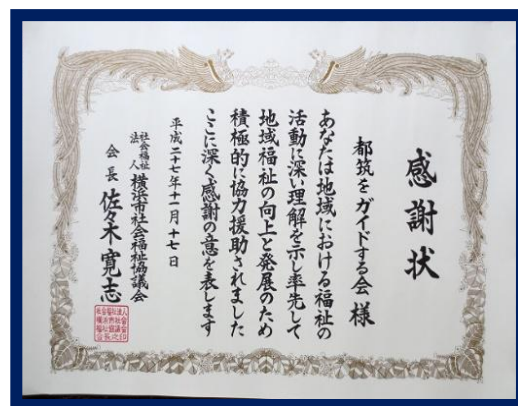 感謝状
都筑をガイドする会 様
あなたは地域における福祉の
活動に深い理解を示し率先して
地域福祉の向上と発展のため
積極的に協力援助されました
ここに深く感謝の意を表します
平成二十七年十一月十七日
社会福祉法人 横浜市社会福祉協議会
会長 佐々木寛志